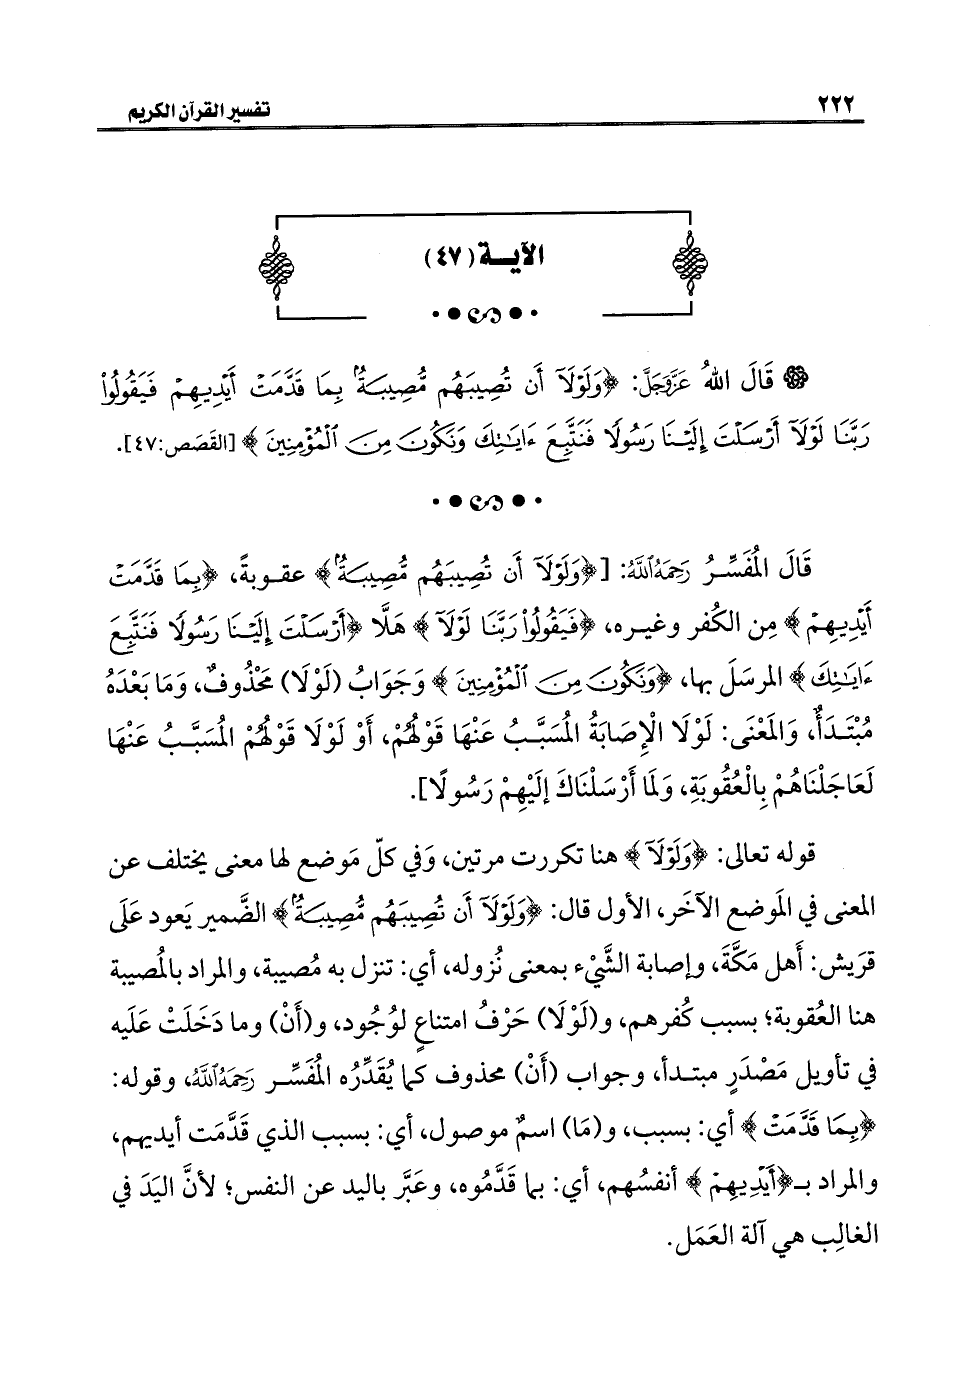 ٢٢٢
تفسير القرآن الكريم
الآيــة (٤٧)
قَالَ اللهُ عَزَّوَجَلَّ: ﴿وَلَوْلَآ أَن تُصِيبَهُم مُّصِيبَةٌۢ بِمَا قَدَّمَتْ أَيْدِيهِمْ فَيَقُولُوا۟
رَبَّنَا لَوْلَآ أَرْسَلْتَ إِلَيْنَا رَسُولًا فَنَتَّبِعَ ءَايَٰتِكَ وَنَكُونَ مِنَ ٱلْمُؤْمِنِينَ﴾ [القَصَص:٤٧].
قَالَ المُفَسِّرُ رَحِمَهُ ٱللَّهُ: [﴿وَلَوْلَآ أَن تُصِيبَهُم مُّصِيبَةٌۢ﴾ عقوبةً، ﴿بِمَا قَدَّمَتْ
أَيْدِيهِمْ﴾ مِن الكُفر وغيره، ﴿فَيَقُولُوا۟ رَبَّنَا لَوْلَآ﴾ هَلَّا ﴿أَرْسَلْتَ إِلَيْنَا رَسُولًا فَنَتَّبِعَ
ءَايَٰتِكَ﴾ المرسَلَ بها، ﴿وَنَكُونَ مِنَ ٱلْمُؤْمِنِينَ﴾ وَجَوَابُ (لَوْلَا) مَحْذُوفٌ، وَمَا بَعْدَهُ
مُبْتَدَأٌ، وَالمَعْنَى: لَوْلَا الْإِصَابَةُ المُسَبَّبُ عَنْهَا قَوْلُهُمْ، أَوْ لَوْلَا قَوْلُهُمْ المُسَبَّبُ عَنْهَا
لَعَاجَلْنَاهُمْ بِالْعُقُوبَةِ، وَلَمَا أَرْسَلْنَاكَ إِلَيْهِمْ رَسُولًا].
قوله تعالى: ﴿وَلَوْلَآ﴾ هنا تكررت مرتين، وَفي كلّ مَوضع لها معنى يختلف عن
المعنى في المَوضع الآخَر، الأول قال: ﴿وَلَوْلَآ أَن تُصِيبَهُم مُّصِيبَةٌۢ﴾ الضَّمير يَعود عَلَى
قرَيش: أَهل مَكَّةَ، وإصابة الشَّيْء بمعنى نُزوله، أي: تنزل به مُصيبة، والمراد بالمُصيبة
هنا العُقوبة؛ بسبب كُفرهم، و(لَوْلَا) حَرْفُ امتناعٍ لوُجود، و(أَنْ) وما دَخَلَتْ عَلَيه
في تأويل مَصْدَرٍ مبتدأ، وجواب (أَنْ) محذوف كما يُقَدِّرُه المُفَسِّر رَحِمَهُ ٱللَّهُ، وقوله:
﴿بِمَا قَدَّمَتْ﴾ أي: بسبب، و(مَا) اسمٌ موصول، أي: بسبب الذي قَدَّمَت أيديهم،
والمراد بـ﴿أَيْدِيهِمْ﴾ أنفسُهم، أي: بما قَدَّمُوه، وعَبَّر باليد عن النفس؛ لأنَّ اليَدَ في
الغالِب هي آلة العَمَل.